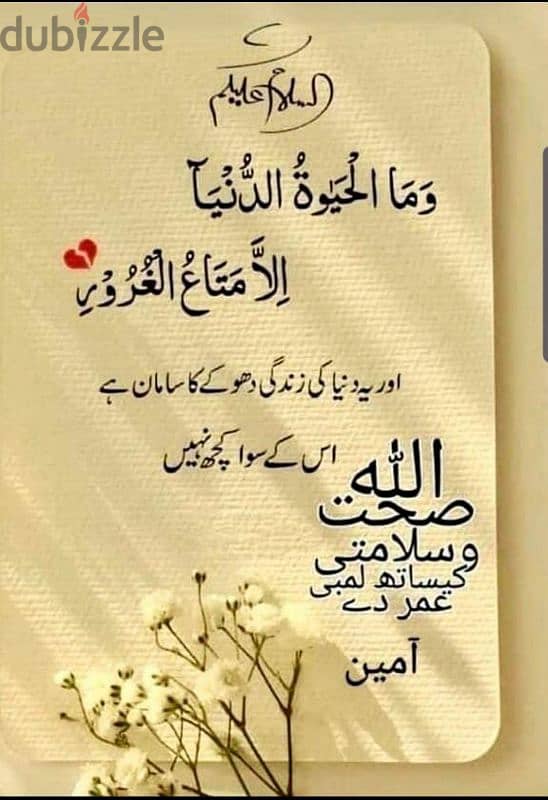 dubizzle
السلام علیکم
وَمَا الْحَيٰوةُ الدُّنْيَآ
اِلاَّ مَتَاعُ الْغُرُوْرِ
اور یہ دنیا کی زندگی دھوکے کا سامان ہے
اس کے سوا کچھ نہیں
اللہ
صحت
و سلامتی
کیساتھ لمبی
عمر دے
آمین